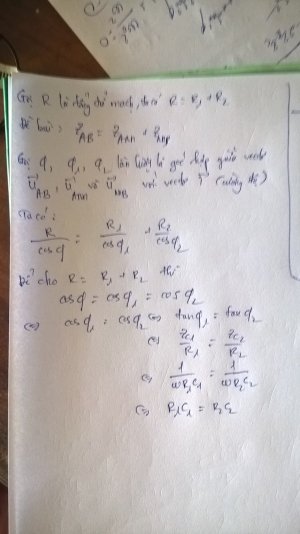 Gọi R là tổng trở mạch, ta có R = R₁ + R₂
Đề bài: Z_AB = Z_AM + Z_MB
Gọi φ, φ₁, φ₂ lần lượt là góc hợp giữa vectơ
U⃗_AB, U⃗_AM và U⃗_MB với vectơ I⃗
Ta có:
R/cosφ = R₁/cosφ₁ + R₂/cosφ₂
Để cho R = R₁ + R₂ thì
cosφ = cosφ₁ = cosφ₂
⇔ cosφ₁ = cosφ₂ ⇔ tanφ₁ = tanφ₂
⇔ Z_C1/R₁ = Z_C2/R₂
⇔ 1/ωR₁C₁ = 1/ωR₂C₂
⇔ R₁C₁ = R₂C₂